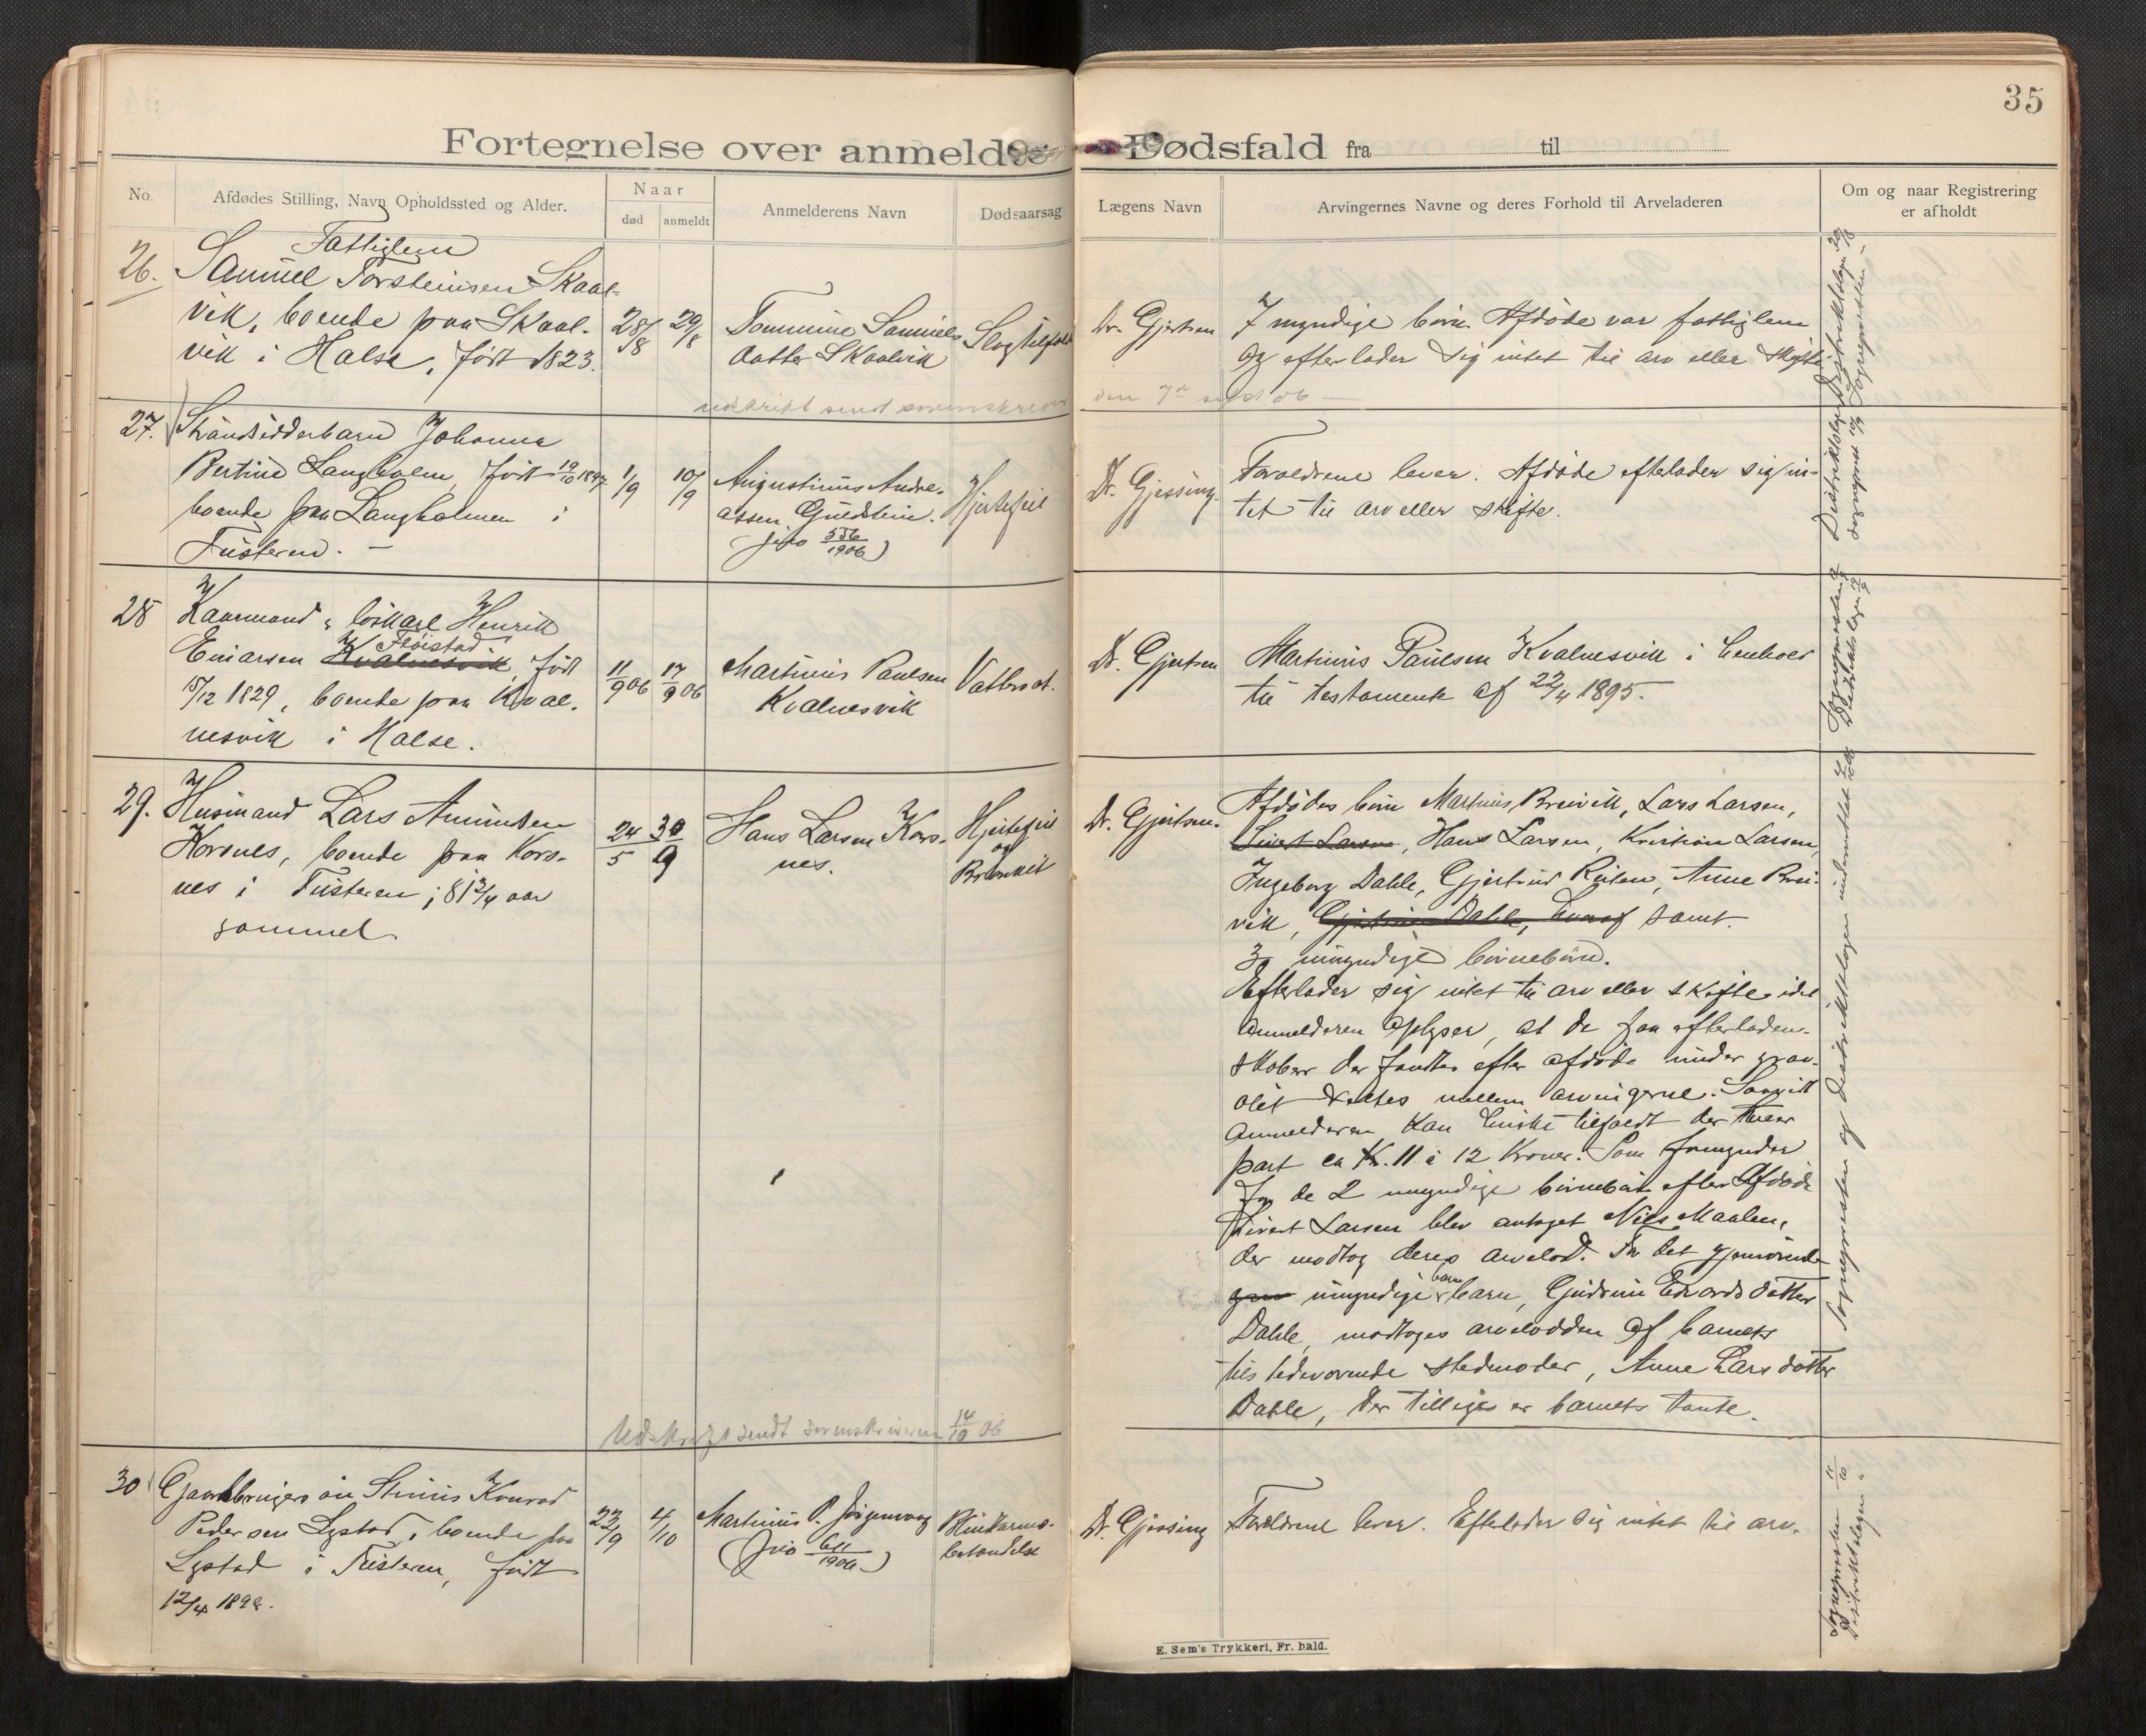 35
Fortegnelse over anmeldte Dødsfald fra til
No. Afdødes Stilling, Navn Opholdssted og Alder. Naar død anmeldt Anmelderens Navn Dødsaarsag
Lægens Navn Arvingernes Navne og deres Forhold til Arveladeren Om og naar Registrering
er afholdt
26. Fattiglem
Samuel Torsteinsen Skaal-
vik, boende paa Skaal-
vik i Halse, født 1823.
28/8 29/8
Tommine Samuels
datter Skaalvik
Slagtilfæld
Dr. Gjertsen
7 myndige børn. Afdøde var fattiglem
og efterlader sig intet til arv eller skifte.
Distriktslægen 30/8
Sognepresten "
udskrift sendt sorenskriver
den 06
27. Strandsidderbarn Johanna
Bertine Langholm, født 19/10 1897
boende paa Langholmen i
Tusteren. -
1/9 10/9
Augustinus Andre-
assen Guldstein.
(Jno 556/1906)
Hjertefeil
Dr. Gjessing.
Forældrene lever. Afdøde efterlader sig in-
tet til arv eller skifte.
Distriktslægen
Sognepresten
28 Kaarmand & løskarl Henrik
Einarsen Kvalnesvik Fløistad, født
15/12 1829, boende paa Kval-
nesvik i Halse.
11/9 06 17/9 06
Martinus Paulsen
Kvalnesvik
Vatersot.
Dr. Gjertsen
Martinus Paulsen Kvalnesvik i henhold
til testamente af 22/4 1895.
Sognepresten
Distriktslægen
29. Husmand Lars Amundsen
Korsnes, boende paa Kors-
nes i Tusteren; 81 3/4 aar
gammel
24/5 30/9
Hans Larsen Kors-
nes.
Hjertefeil
og
Bronkit
Dr. Gjertsen.
Afdødes børn Martinus Breivik, Lars Larsen,
Sivert Larsen, Hans Larsen, Kristian Larsen,
Ingeborg Dahle, Gjertrud Reiten, Anne Brei-
vik, Gjertrud Dahle, hvoraf samt
3 umyndige børnebørn.
Efterlader sig intet til arv eller skifte, idet
anmelderen oplyser, at de faa efterladen-
skaber der fandtes efter afdøde under grav-
ølet deltes mellem arvingerne. Saavidt
anmelderen kan huske tilfaldt der hver
part ca Kr. 11 à 12 Kroner. Som formynder
for de 2 umyndige børnebørn efter afdøde
Sivert Larsen blev antaget Nils Maalen,
der modtog deres arvelod. For det gjenværende
umyndige barnebarn, Gudrun Edvardsdatter
Dahle, modtoges arvelodden af barnets
tilstedeværende stedmoder, Anne Larsdatter
Dahle, der tillige er barnets tante.
Sognepresten og distriktslægen underrettet
Udskrift sendt sorenskriveren 14/10 06
30 Gaardbrugersøn Stinius Konrad
Pedersen Lystad, boende paa
Lystad i Tusteren, født
12/4 189
22/9 4/10
Martinus P. Jørgenvaag
(Jno 611/1906)
Blindtarms-
betændelse
Dr. Gjessing
Forældrene lever. Efterlader sig intet til arv.
Sognepresten 11/10
Distriktslægen "
E. Sem's Trykkeri, Fr. hald.